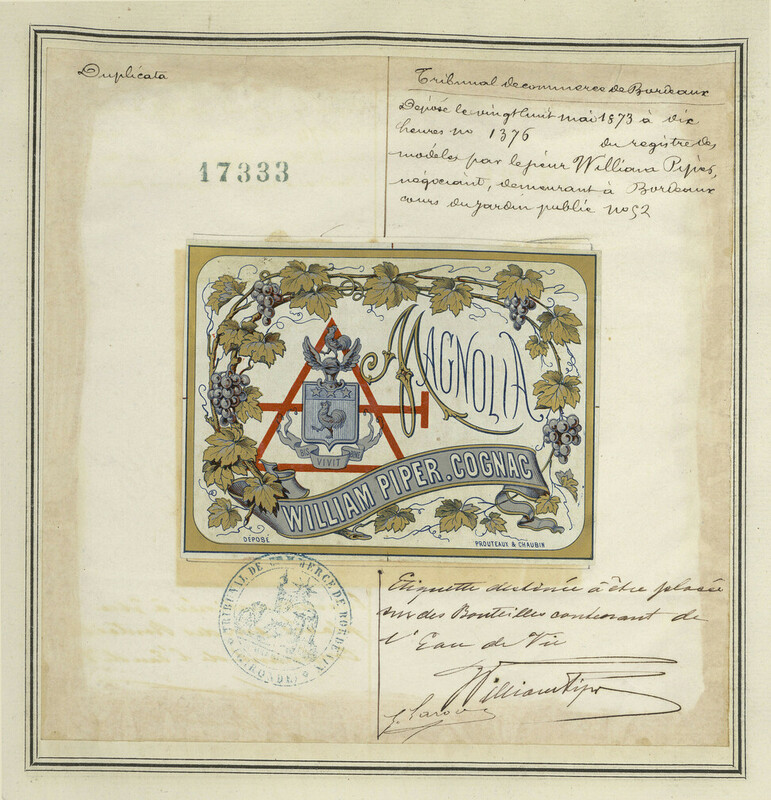 Duplicata
17333
Tribunal de commerce de Bordeaux
Déposé le vingt huit mai 1873 à dix
heures no 1376 du registre des
modèles par le sieur William Pipèr,
négociant, demeurant à Bordeaux
cours du jardin public no 52
MAGNOLIA
VIVIT
WILLIAM PIPER. COGNAC
DÉPOSÉ
PROUTEAUX & CHAUBIN
TRIBUNAL DE COMMERCE DE BORDEAUX
(GIRONDE)
Etiquette destinée à être placée
sur des Bouteilles contenant de
l'Eau de Vie
William Piper